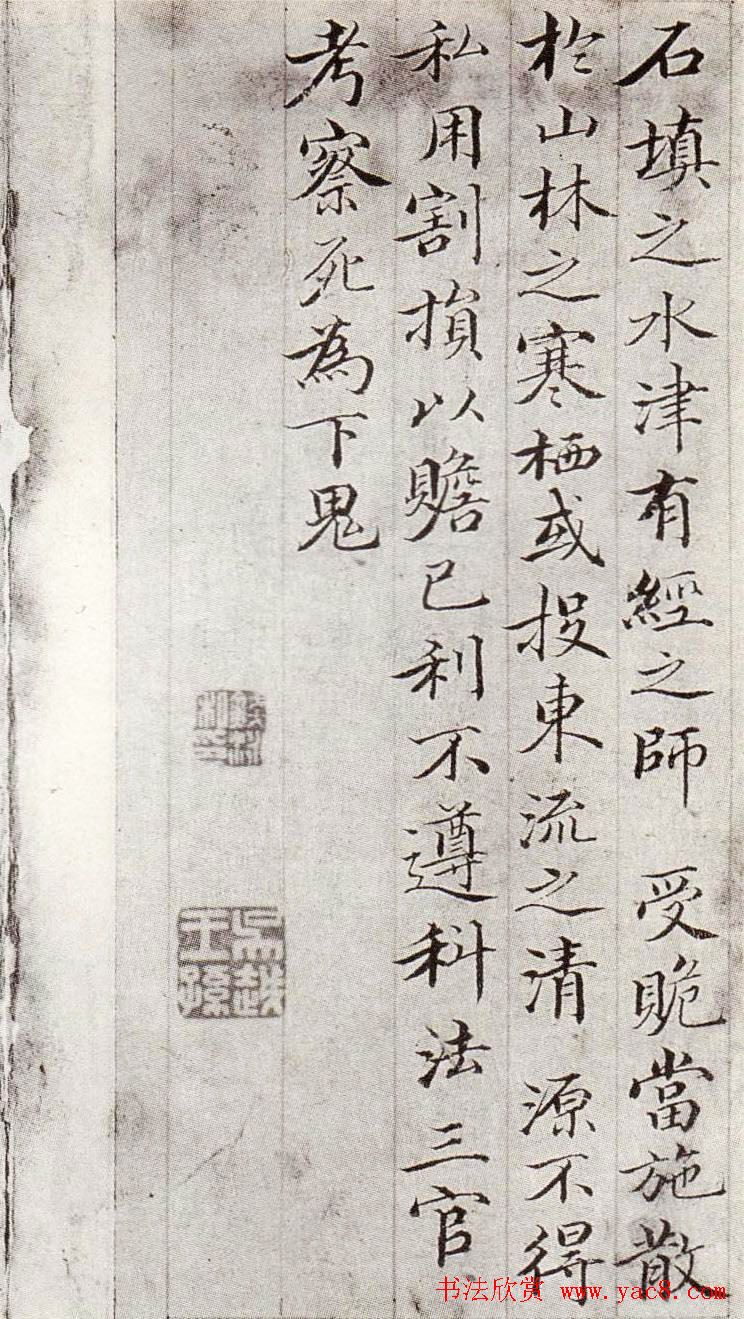 石填之水津有經之師 受賄當施散
於山林之寒栖或投東流之清 源不得
私用割損以贍己利不遵科法三官
考察死為下鬼
吳越
王孫
书法欣赏 www.yac8.com